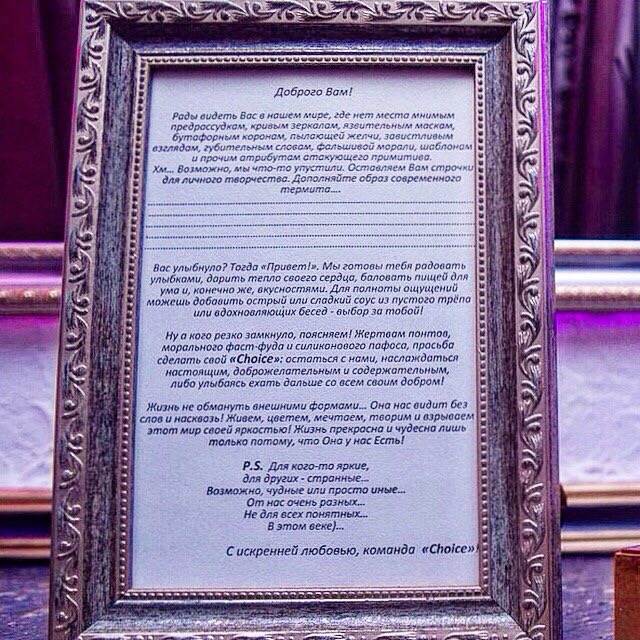 Доброго Вам!
Рады видеть Вас в нашем мире, где нет места мнимым
предрассудкам, кривым зеркалам, язвительным маскам,
бутафорным коронам, пылающей желчи, завистливым
взглядам, губительным словам, фальшивой морали, шаблонам
и прочим атрибутам атакующего примитива.
Хм... Возможно, мы что-то упустили. Оставляем Вам строчки
для личного творчества. Дополняйте образ современного
термита....
Вас улыбнуло? Тогда «Привет!». Мы готовы тебя радовать
улыбками, дарить тепло своего сердца, баловать пищей для
ума и, конечно же, вкусностями. Для полноты ощущений
можешь добавить острый или сладкий соус из пустого трёпа
или вдохновляющих бесед - выбор за тобой!
Ну а кого резко замкнуло, поясняем! Жертвам понтов,
морального фаст-фуда и силиконового пафоса, просьба
сделать свой «Choice»: остаться с нами, наслаждаться
настоящим, доброжелательным и содержательным,
либо улыбаясь ехать дальше со всем своим добром!
Жизнь не обмануть внешними формами... Она нас видит без
слов и насквозь! Живем, цветем, мечтаем, творим и взрываем
этот мир своей яркостью! Жизнь прекрасна и чудесна лишь
только потому, что Она у нас Есть!
P.S. Для кого-то яркие,
для других - странные...
Возможно, чудные или просто иные...
От нас очень разных...
Не для всех понятных...
В этом веке)...
С искренней любовью, команда «Choice»!